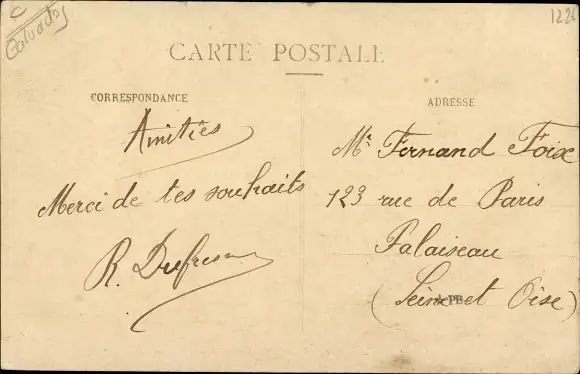 C
Calvados
1226
CARTE POSTALE
CORRESPONDANCE
Amitiés
Merci de tes souhaits
R. Dufresne
ADRESSE
Mr Fernand Foix
123 rue de Paris
Palaiseau
(Seine et Oise)